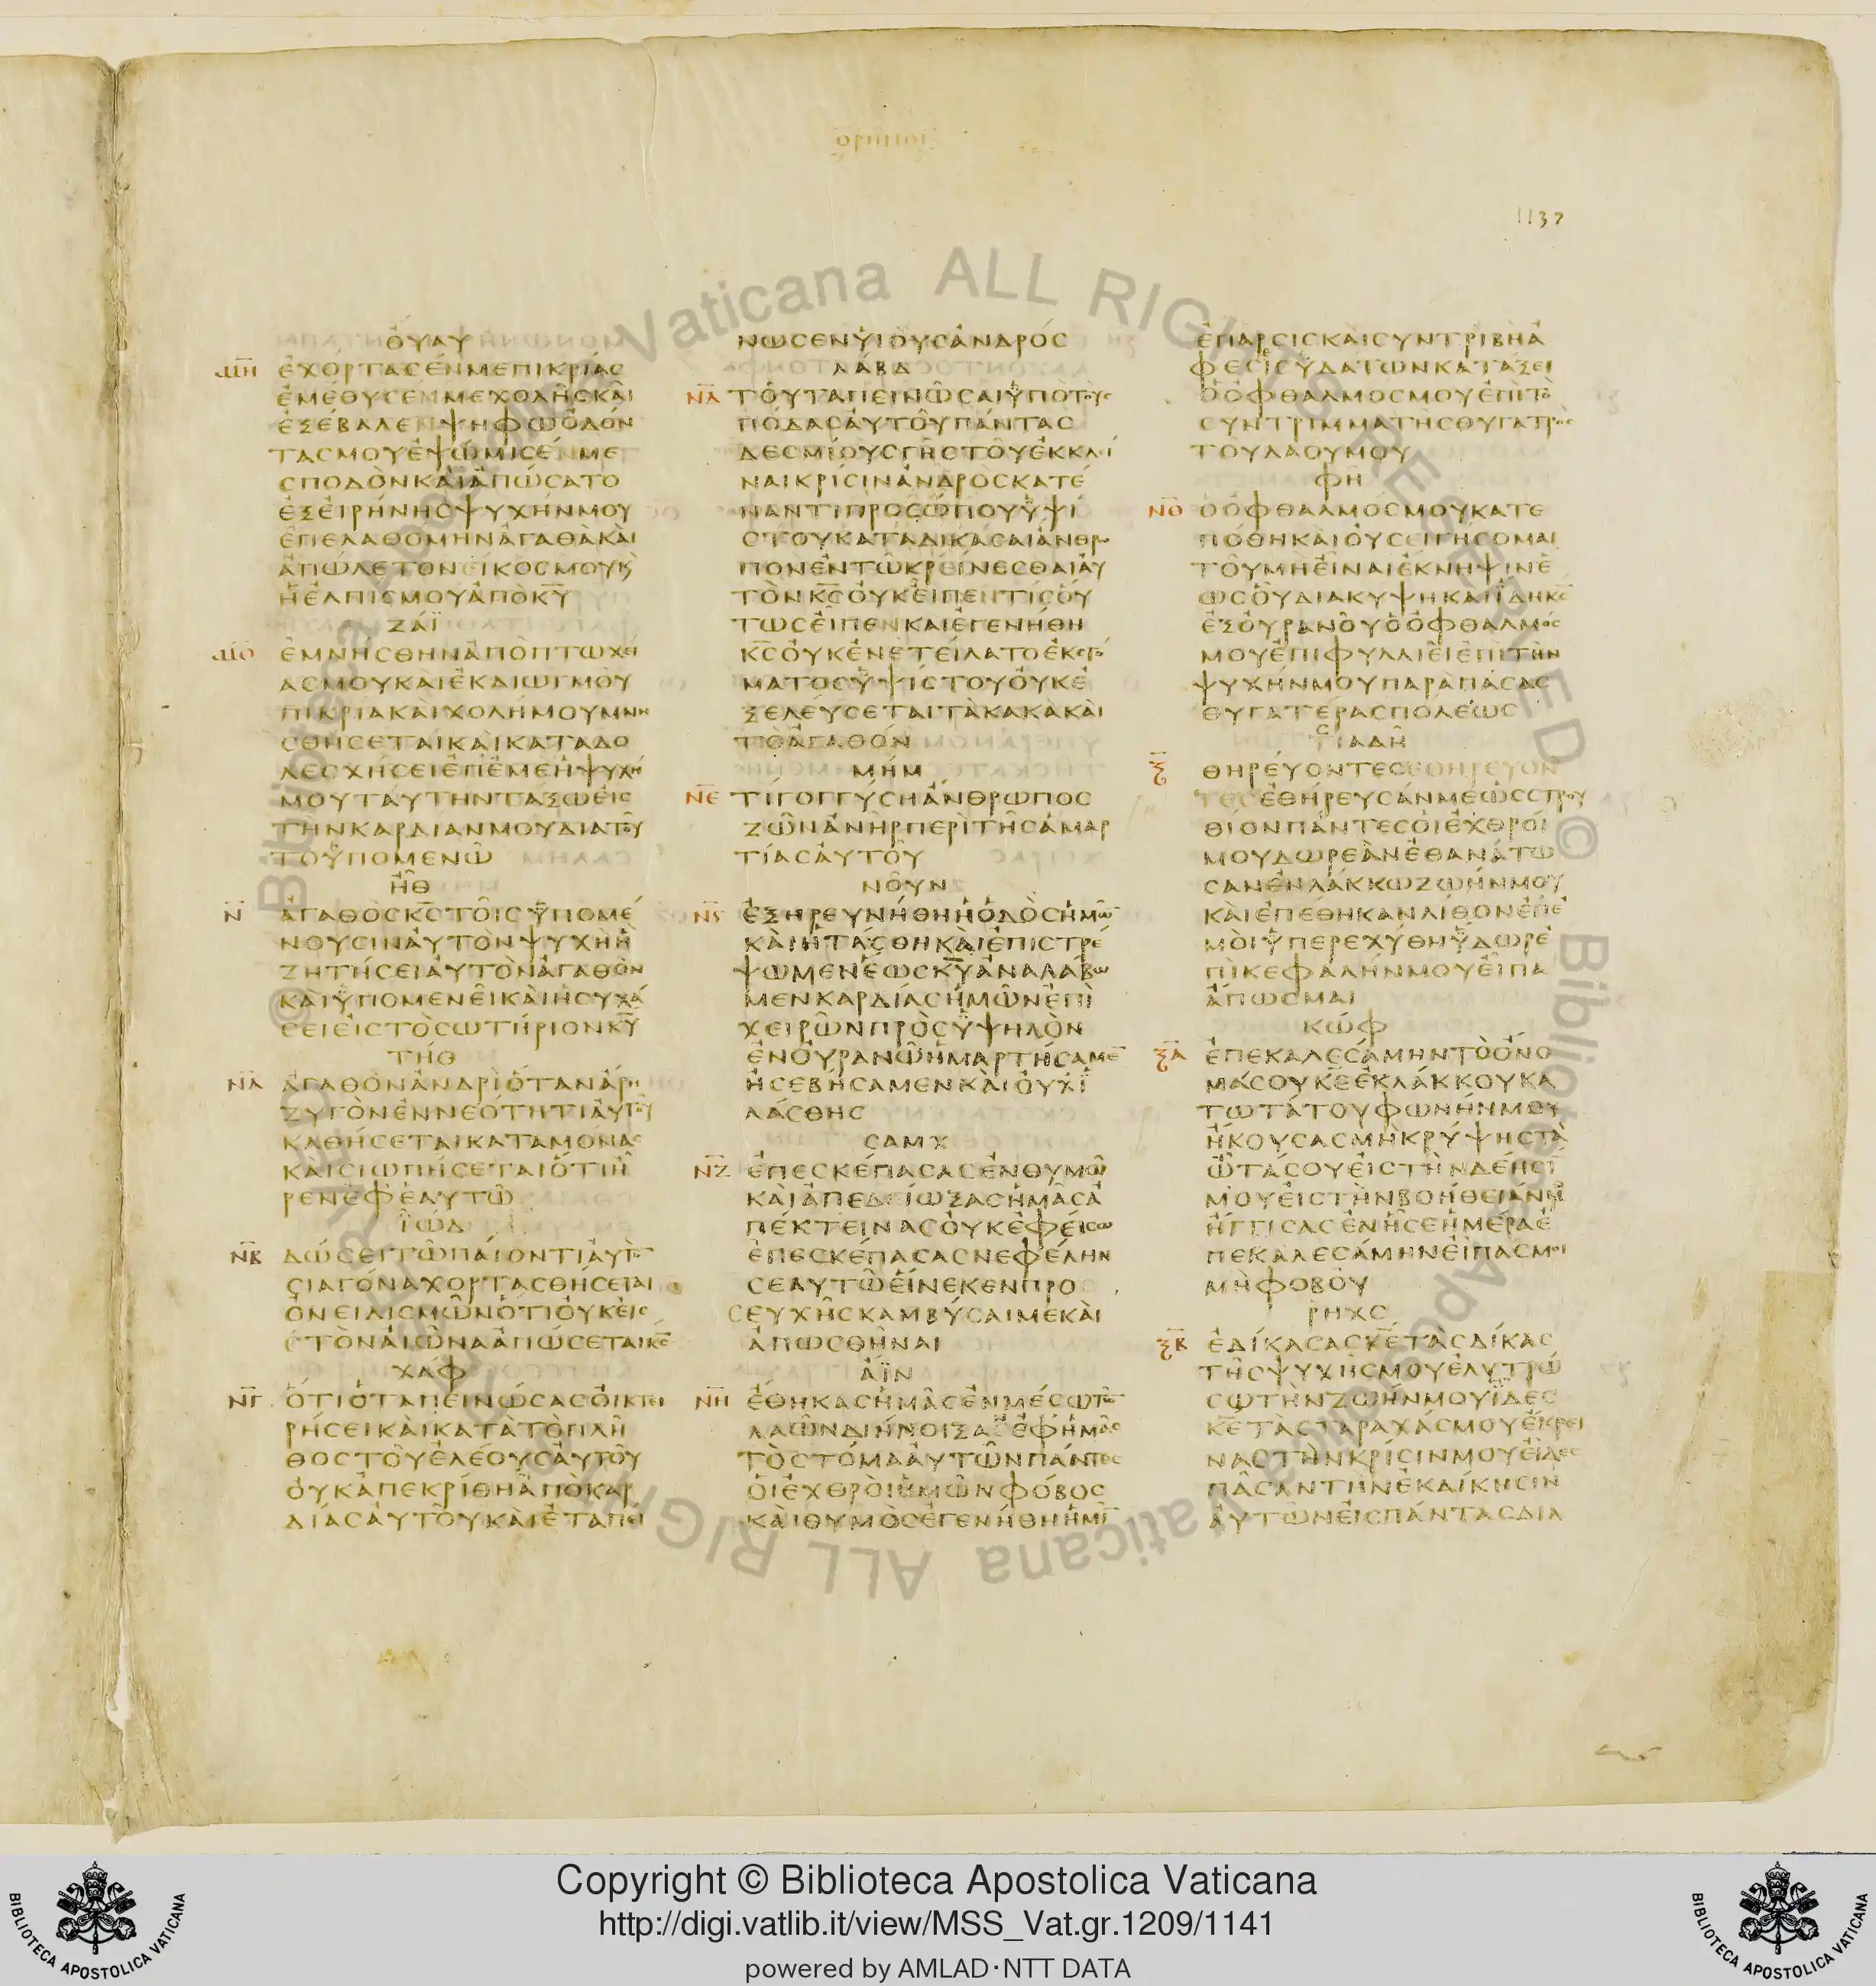 1137
ΟΥΑΥ
ΜΗ ΕΧΟΡΤΑСΕΝΜΕΠΙΚΡΙΑС
ΕΜΕΘΥСΕΝΜΕΧΟΛΗСΚΑΙ
ΕΞΕΒΑΛΕΝΨΗΦΩΟΔΟΝ
ΤΑСΜΟΥΕΨΩΜΙСΕΝΜΕ
СΠΟΔΟΝΚΑΙΑΠΩСΑΤΟ
ΕΞΕΙΡΗΝΗСΨΥΧΗΝΜΟΥ
ΕΠΕΛΑΘΟΜΗΝΑΓΑΘΑΚΑΙ
ΑΠΩΛΕΤΟΝΕΙΚΟСΜΟΥΚ
ΗΕΛΠΙСΜΟΥΑΠΟΚΥ
ΖΑΪ
ΜΘ ΕΜΝΗСΘΗΝΑΠΟΠΤΩΧΕΙ
ΑСΜΟΥΚΑΙΕΚΔΙΩΓΜΟΥ
ΠΙΚΡΙΑΚΑΙΧΟΛΗΜΟΥΜΝΗ
СΘΗСΕΤΑΙΚΑΙΚΑΤΑΔΟ
ΛΕСΧΗСΕΙΕΠΕΜΕΗΨΥΧΗ
ΜΟΥΤΑΥΤΗΝΤΑΞΩΕΙС
ΤΗΝΚΑΡΔΙΑΝΜΟΥΔΙΑΤΟΥ
ΤΟΫΠΟΜΕΝΩ
ΗΘ
Ν ΑΓΑΘΟСΚСΤΟΙСΫΠΟΜΕ
ΝΟΥСΙΝΑΥΤΟΝΨΥΧΗΗ
ΖΗΤΗСΕΙΑΥΤΟΝΑΓΑΘΟΝ
ΚΑΙΫΠΟΜΕΝΕΙΚΑΙΗСΥΧΑ
СΕΙΕΙСΤΟСΩΤΗΡΙΟΝΚΥ
ΤΗΘ
ΝΑ ΑΓΑΘΟΝΑΝΔΡΙΟΤΑΝΑΡΗ
ΖΥΓΟΝΕΝΝΕΟΤΗΤΙΑΥΤΟΥ
ΚΑΘΗСΕΤΑΙΚΑΤΑΜΟΝΑС
ΚΑΙСΙΩΠΗСΕΤΑΙΟΤΙΗ
ΡΕΝΕΦΕΑΥΤΩ
ΪΩΔ
ΝΒ ΔΩСΕΙΤΩΠΑΙΟΝΤΙΑΥΤΟ
СΙΑΓΟΝΑΧΟΡΤΑСΘΗСΕΤΑΙ
ΟΝΕΙΔΙСΜΩΝΟΤΙΟΥΚΕΙС
СΤΟΝΑΙΩΝΑΑΠΩСΕΤΑΙΚС
ΧΑΦ
ΝΓ ΟΤΙΟΤΑΠΕΙΝΩСΑСΟΙΚΤΕΙ
ΡΗСΕΙΚΑΙΚΑΤΑΤΟΠΛΗ
ΘΟСΤΟΥΕΛΕΟΥСΑΥΤΟΥ
ΟΥΚΑΠΕΚΡΙΘΗΑΠΟΚΑΡ
ΔΙΑСΑΥΤΟΥΚΑΙΕΤΑΠΕΙ
ΝΩСΕΝΥΙΟΥСΑΝΔΡΟС
ΛΑΒΔ
ΝΔ ΤΟΥΤΑΠΕΙΝΩСΑΙΫΠΟΤΟΥС
ΠΟΔΑСΑΥΤΟΥΠΑΝΤΑС
ΔΕСΜΙΟΥСΓΗСΤΟΥΕΚΚΛΙ
ΝΑΙΚΡΙСΙΝΑΝΔΡΟСΚΑΤΕ
ΝΑΝΤΙΠΡΟСΩΠΟΥΫΨΙ
СΤΟΥΚΑΤΑΔΙΚΑСΑΙΑΝΘΡΩ
ΠΟΝΕΝΤΩΚΡΕΙΝΕСΘΑΙΑΥ
ΤΟΝΚСΟΥΚΕΙΠΕΝΤΙСΟΥ
ΤΩСΕΙΠΕΝΚΑΙΕΓΕΝΗΘΗ
ΚСΟΥΚΕΝΕΤΕΙΛΑΤΟΕΚСΤΟ
ΜΑΤΟСΫΨΙСΤΟΥΟΥΚΕ
ΞΕΛΕΥСΕΤΑΙΤΑΚΑΚΑΚΑΙ
ΤΟΑΓΑΘΟΝ
ΜΗΜ
ΝΕ ΤΙΓΟΓΓΥСΗΑΝΘΡΩΠΟС
ΖΩΝΑΝΗΡΠΕΡΙΤΗСΑΜΑΡ
ΤΙΑСΑΥΤΟΥ
ΝΟΥΝ
ΝϚ ΕΞΗΡΕΥΝΗΘΗΗΟΔΟСΗΜΩ
ΚΑΙΗΤΑСΘΗΚΑΙΕΠΙСΤΡΕ
ΨΩΜΕΝΕΩСΚΥΑΝΑΛΑΒΩ
ΜΕΝΚΑΡΔΙΑСΗΜΩΝΕΠΙ
ΧΕΙΡΩΝΠΡΟСΫΨΗΛΟΝ
ΕΝΟΥΡΑΝΩΗΜΑΡΤΗСΑΜΕ
ΗСΕΒΗСΑΜΕΝΚΑΙΟΥΧΪ
ΛΑСΘΗС
СΑΜΧ
ΝΖ ΕΠΕСΚΕΠΑСΑСΕΝΘΥΜΩ
ΚΑΙΑΠΕΔΕΙΩΞΑСΗΜΑСΑ
ΠΕΚΤΕΙΝΑСΟΥΚΕΦΕΙСΩ
ΕΠΕСΚΕΠΑСΑСΝΕΦΕΛΗΝ
СΕΑΥΤΩΕΙΝΕΚΕΝΠΡΟ
СΕΥΧΗСΚΑΜΒΥСΑΙΜΕΚΑΙ
ΑΠΩСΘΗΝΑΙ
ΑΪΝ
ΝΗ ΕΘΗΚΑСΗΜΑСΕΝΜΕСΩΤΩ
ΛΑΩΝΔΙΗΝΟΙΞΑΕΦΗΜΑС
ΤΟСΤΟΜΑΑΥΤΩΝΠΑΝΤΕС
ΟΙΕΧΘΡΟΙΗΜΩΝΦΟΒΟС
ΚΑΙΘΥΜΟСΕΓΕΝΗΘΗΗΜΙ
ΕΠΑΡСΙСΚΑΙСΥΝΤΡΙΒΗΑ
ΦΕСΕΙСΫΔΑΤΩΝΚΑΤΑΞΕΙ
ΟΟΦΘΑΛΜΟСΜΟΥΕΠΙΤΟ
СΥΝΤΡΙΜΜΑΤΗСΘΥΓΑΤΡΟС
ΤΟΥΛΑΟΥΜΟΥ
ΦΗ
ΝΘ ΟΟΦΘΑΛΜΟСΜΟΥΚΑΤΕ
ΠΟΘΗΚΑΙΟΥСΕΙΓΗСΟΜΑΙ
ΤΟΥΜΗΕΙΝΑΙΕΚΝΗΨΙΝΕ
ΩСΟΥΔΙΑΚΥΨΗΚΑΙΪΔΗΚС
ΕΞΟΥΡΑΝΟΥΟΟΦΘΑΛΜΟС
ΜΟΥΕΠΙΦΥΛΛΙΕΙΕΠΙΤΗΝ
ΨΥΧΗΝΜΟΥΠΑΡΑΠΑСΑС
ΘΥΓΑΤΕΡΑСΠΟΛΕΩС
ΤСΙΑΔΗ
Ξ ΘΗΡΕΥΟΝΤΕСΕΘΗΡΕΥΟΝ
ΤΕСΕΘΗΡΕΥСΑΝΜΕΩССΤΡΟΥ
ΘΙΟΝΠΑΝΤΕСΟΙΕΧΘΡΟΙ
ΜΟΥΔΩΡΕΑΝΕΘΑΝΑΤΩ
СΑΝΕΝΛΑΚΚΩΖΩΗΝΜΟΥ
ΚΑΙΕΠΕΘΗΚΑΝΛΙΘΟΝΕΠΕ
ΜΟΙΫΠΕΡΕΧΥΘΗΫΔΩΡΕ
ΠΙΚΕΦΑΛΗΝΜΟΥΕΙΠΑ
ΑΠΩСΜΑΙ
ΚΩΦ
ΞΑ ΕΠΕΚΑΛΕСΑΜΗΝΤΟΟΝΟ
ΜΑСΟΥΚΕΕΚΛΑΚΚΟΥΚΑ
ΤΩΤΑΤΟΥΦΩΝΗΝΜΟΥ
ΗΚΟΥСΑСΜΗΚΡΥΨΗСΤΑ
ΩΤΑСΟΥΕΙСΤΗΝΔΕΗСΙ
ΜΟΥΕΙСΤΗΝΒΟΗΘΕΙΑΝΜ
ΗΓΓΙСΑСΕΝΗСΕΗΜΕΡΑΕ
ΠΕΚΑΛΕСΑΜΗΝΕΙΠΑСΜΟΙ
ΜΗΦΟΒΟΥ
ΡΗΧС
ΞΒ ΕΔΙΚΑСΑСΚΕΤΑСΔΙΚΑС
ΤΗСΨΥΧΗСΜΟΥΕΛΥΤΡΩ
СΩΤΗΝΖΩΗΝΜΟΥΪΔΕС
ΚΕΤΑСΤΑΡΑΧΑСΜΟΥΕΚΡΕΙ
ΝΑСΤΗΝΚΡΙСΙΝΜΟΥΕΙΔΕС
ΠΑСΑΝΤΗΝΕΚΔΙΚΗСΙΝ
ΑΥΤΩΝΕΙСΠΑΝΤΑСΔΙΑ
Copyright © Biblioteca Apostolica Vaticana
http://digi.vatlib.it/view/MSS_Vat.gr.1209/1141
powered by AMLAD·NTT DATA
BIBLIOTECA APOSTOLICA VATICANA
BIBLIOTECA APOSTOLICA VATICANA